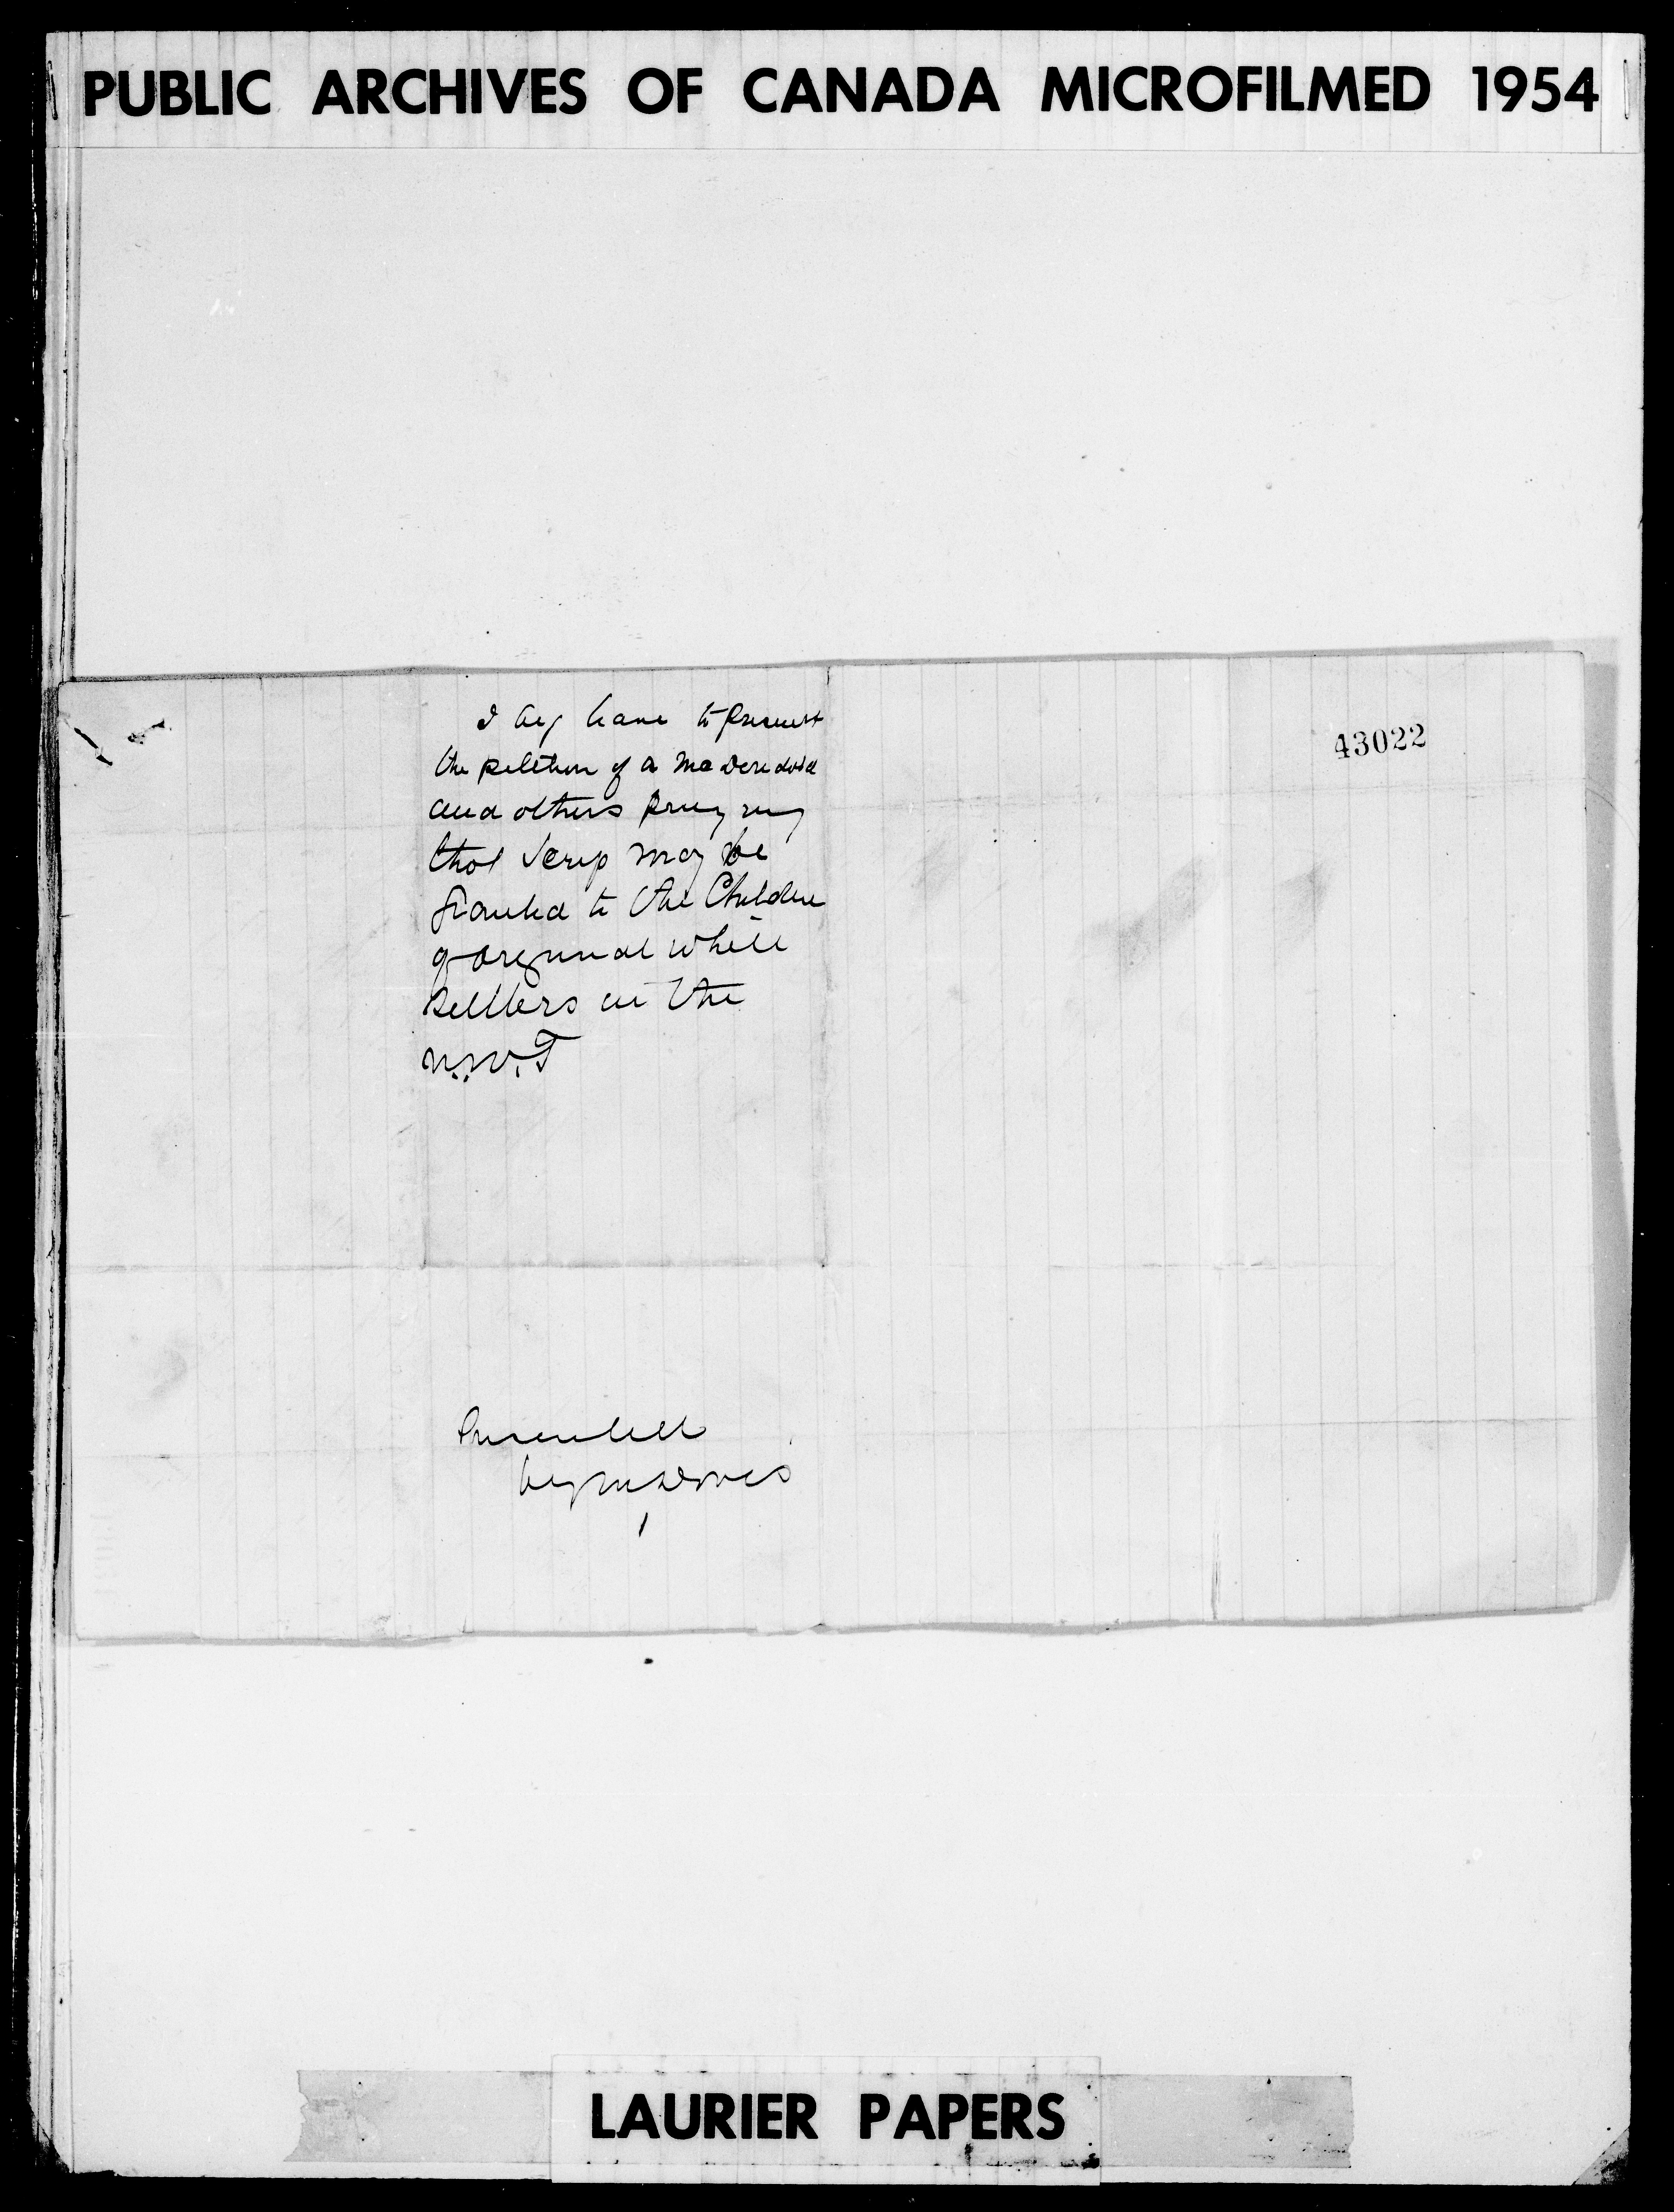 PUBLIC ARCHIVES OF CANADA MICROFILMED 1954
43022
I beg leave to present
the petition of A McDonald
and others praying
that scrip may be
granted to the Children
of original white
settlers in the
N.W.T
Presented
by
LAURIER PAPERS